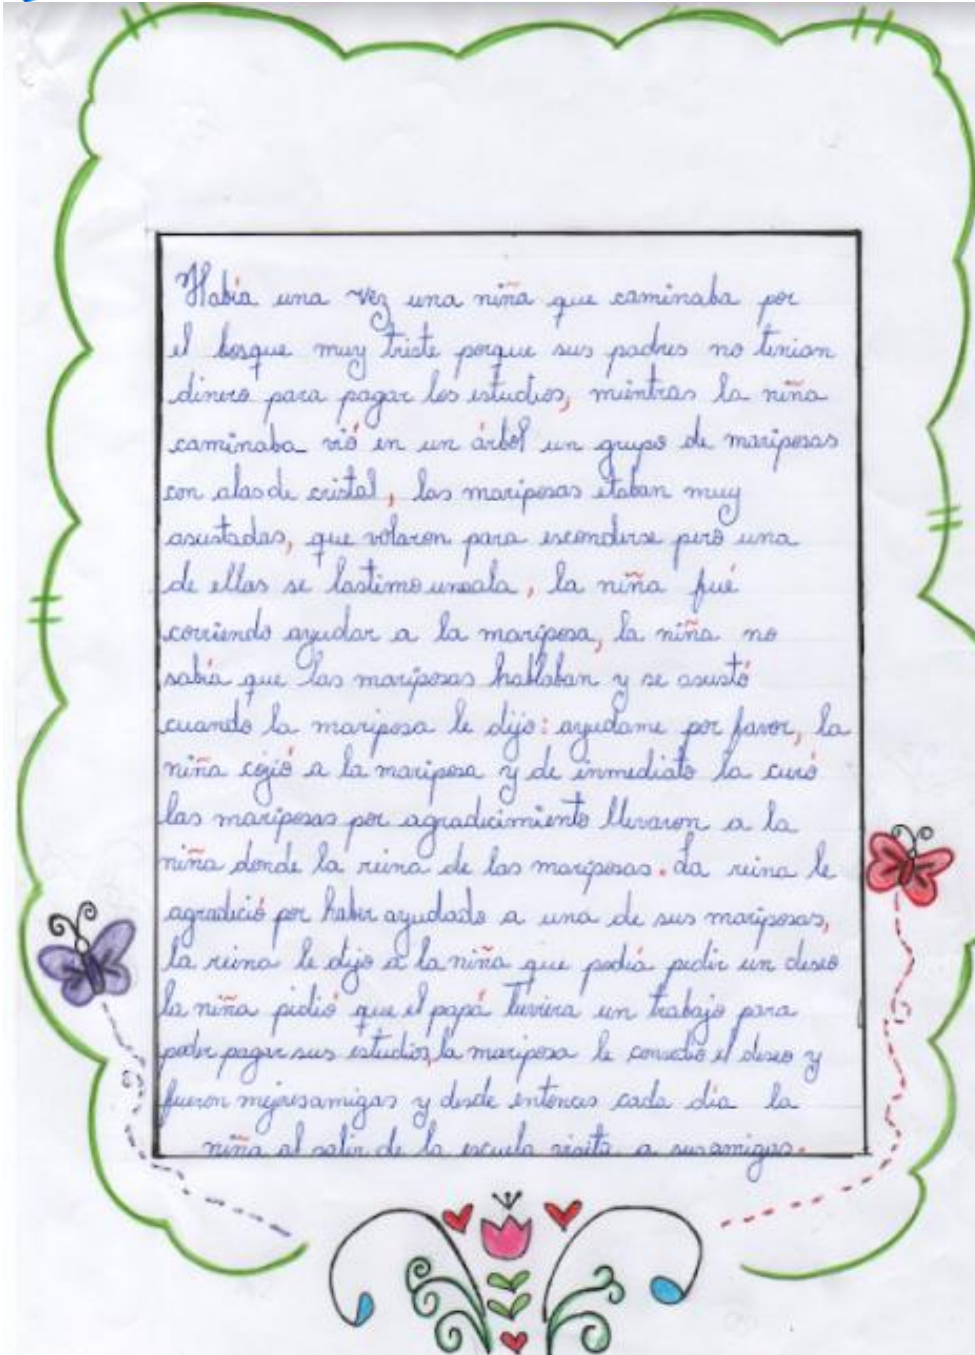 Había una vez una niña que caminaba por
el bosque muy triste porque sus padres no tenian
dinero para pagar los estudios, mientras la niña
caminaba vió en un árbol un grupo de mariposas
con alas de cristal, las mariposas etaban muy
asustadas, que volaron para esconderse pero una
de ellas se lastimo una ala, la niña fué
corriendo ayudar a la mariposa, la niña no
sabía que las mariposas hablaban y se asustó
cuando la mariposa le dijo: ayudame por favor, la
niña cojió a la mariposa y de inmediato la curó
las mariposas por agradecimiento llevaron a la
niña donde la reina de las mariposas. La reina le
agradeció por haber ayudado a una de sus mariposas,
la reina le dijo a la niña que podiá pedir un deseo
la niña pidió que el papá tuviera un trabajo para
poder pagar sus estudios, la mariposa le consedio el deseo y
fueron mejores amigas y desde entonces cada día la
niña al salir de la escuela visita a sus amigas.